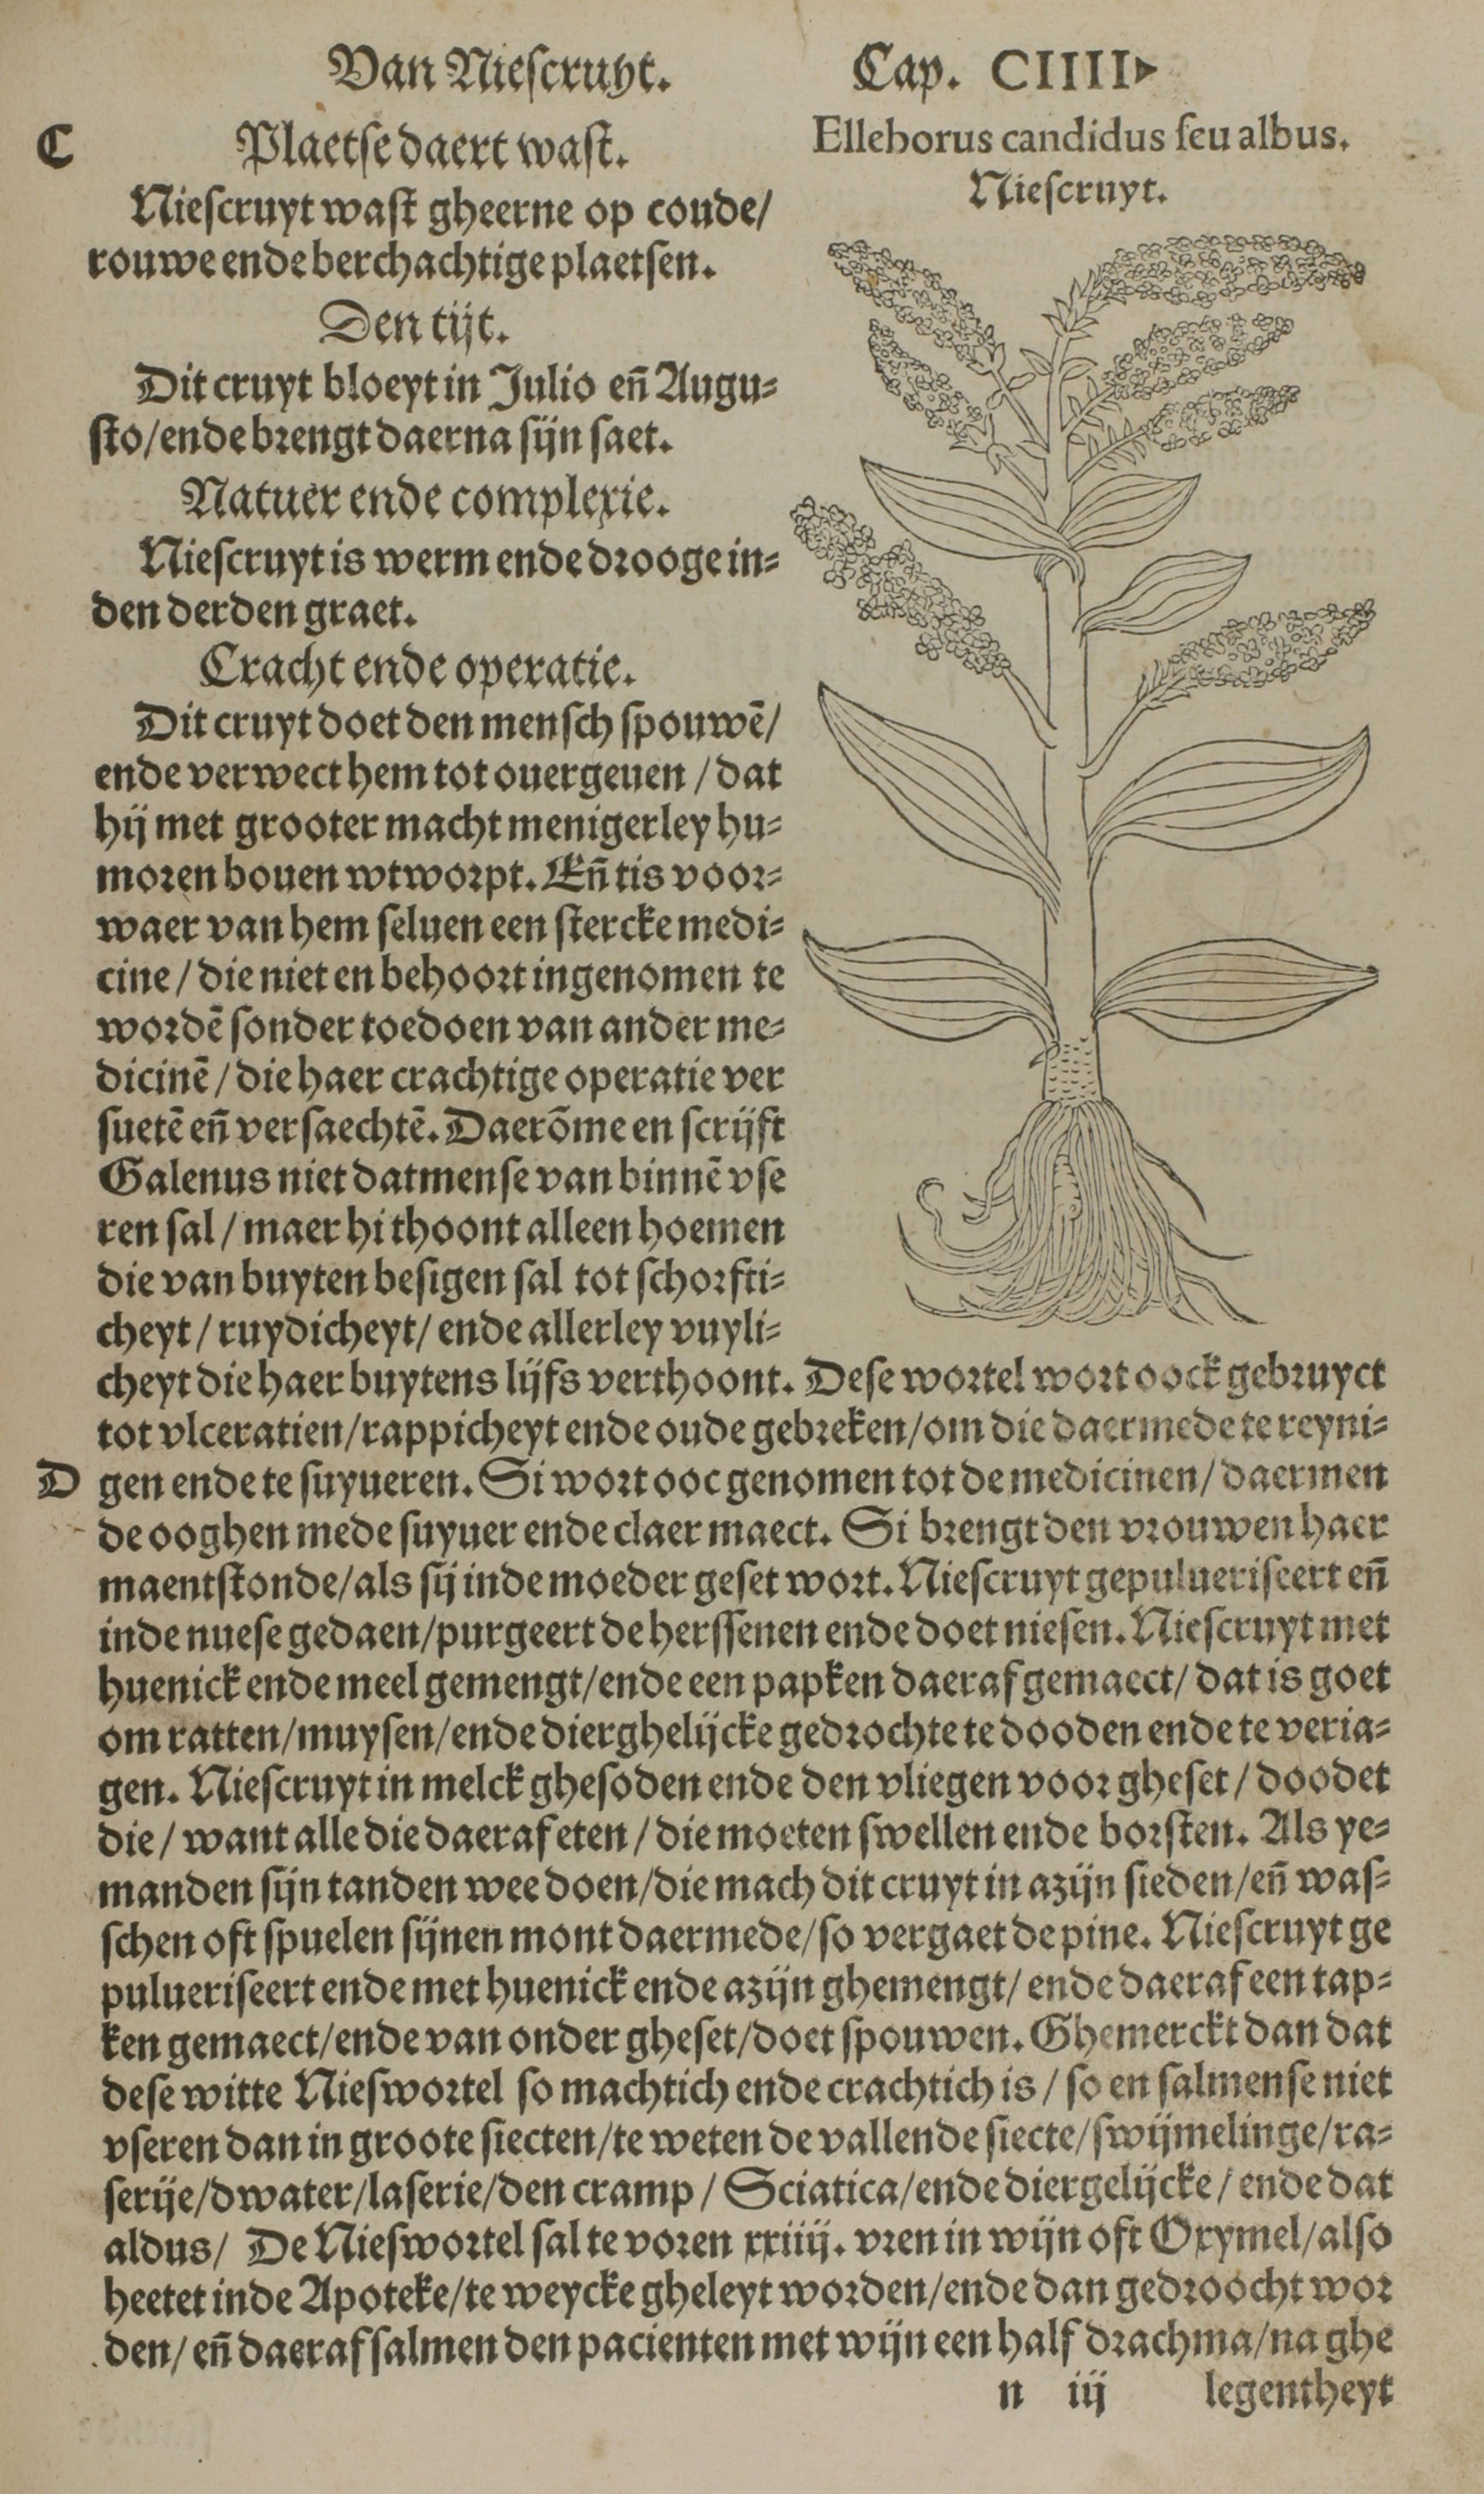 Van Niescruyt.
Cap. CIIII
C
Plaetse daert wast.
Niescruyt wast gheerne op coude/
rouwe ende berchachtige plaetsen.
Den tijt.
Dit cruyt bloeyt in Julio eñ Augu⸗
sto/ende brengt daerna sijn saet.
Natuer ende complexie.
Niescruyt is werm ende drooge in⸗
den derden graet.
Cracht ende operatie.
Dit cruyt doet den mensch spouwẽ/
ende verwect hem tot ouergeuen / dat
hij met grooter macht menigerley hu⸗
moren bouen wtworpt. Eñ tis voor⸗
waer van hem seluen een stercke medi⸗
cine / die niet en behoort ingenomen te
wordẽ sonder toedoen van ander me⸗
dicinẽ / die haer crachtige operatie ver
suetẽ eñ versaechtẽ. Daerõme en scrijft
Galenus niet datmense van binnẽ vse
ren sal / maer hi thoont alleen hoemen
die van buyten besigen sal tot schorfti⸗
cheyt / ruydicheyt/ ende allerley vuyli⸗
Elleborus candidus seu albus.
Niescruyt.
cheyt die haer buytens lijfs verthoont. Dese wortel wort oock gebruyct
tot vlceratien/rappicheyt ende oude gebreken/om die daermede te reyni⸗
D gen ende te suyueren. Si wort ooc genomen tot de medicinen/ daermen
de ooghen mede suyuer ende claer maect. Si brengt den vrouwen haer
maentstonde/als sij inde moeder geset wort. Niescruyt gepulueriseert eñ
inde nuese gedaen/purgeert de herssenen ende doet niesen. Niescruyt met
huenick ende meel gemengt/ende een papken daeraf gemaect/ dat is goet
om ratten/muysen/ende dierghelijcke gedrochte te dooden ende te veria⸗
gen. Niescruyt in melck ghesoden ende den vliegen voor gheset / doodet
die / want alle die daeraf eten / die moeten swellen ende borsten. Als ye⸗
manden sijn tanden wee doen/die mach dit cruyt in azijn sieden/eñ was⸗
schen oft spuelen sijnen mont daermede/so vergaet de pine. Niescruyt ge
pulueriseert ende met huenick ende azijn ghemengt/ ende daeraf een tap⸗
ken gemaect/ende van onder gheset/doet spouwen. Ghemerckt dan dat
dese witte Nieswortel so machtich ende crachtich is / so en salmense niet
vseren dan in groote siecten/te weten de vallende siecte/swijmelinge/ra⸗
serije/dwater/laserie/den cramp / Sciatica/ende diergelijcke / ende dat
aldus/ De Nieswortel sal te voren xxiiij. vren in wijn oft Oxymel/also
heetet inde Apoteke/te weycke gheleyt worden/ende dan gedroocht wor
den/ eñ daeraf salmen den pacienten met wijn een half drachma/na ghe
n iij legentheyt